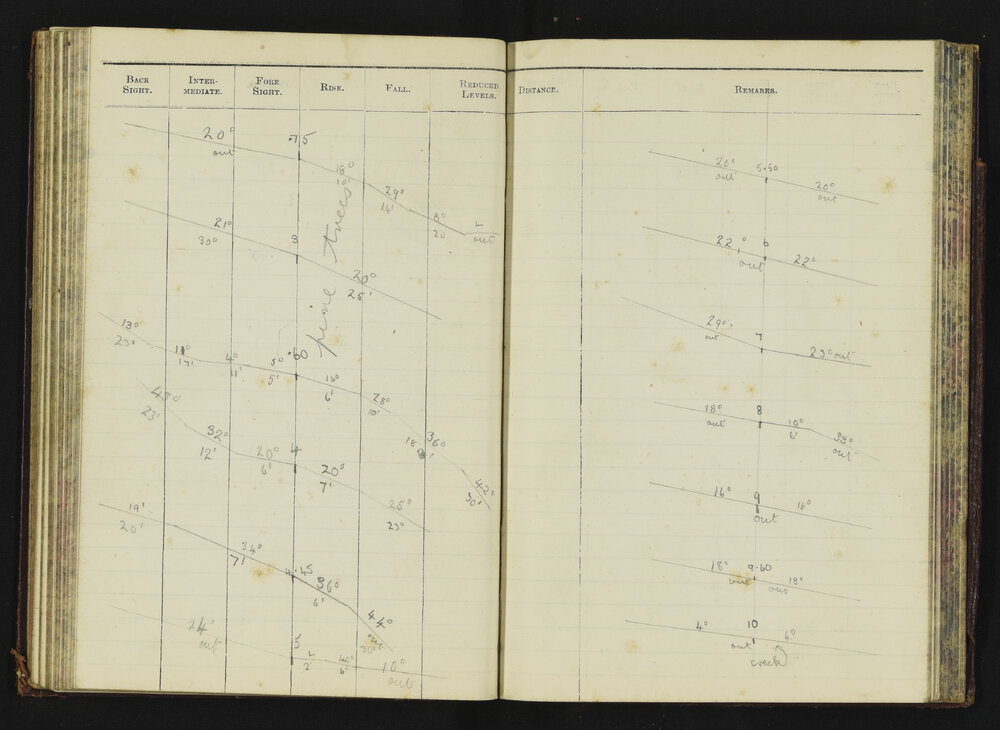 BACK SIGHT. INTER-MEDIATE. FORE SIGHT. RISE. FALL. REDUCED LEVELS.
20° 75
out 18° 29° 8° L
10' 14' 20 out
pine trees
21° 3 20°
30° 25'
13° 11° 4° 5° .60 16° 28° 36° 42°
23' 17' 11' 5' 6' 10' 18 30'
43° 32° 20° 4 20° 25°
23' 12' 6' 7' 23°
19' 34° 4.45 36° 44°
20' 71 6' out
30'
24° 5 L 40° 10°
out 2' 6' out
DISTANCE. REMARKS.
20' 5.50 20°
out out
22° 6 22°
out
29° 7 23° out
out
18° 8 10° 39°
out 6' out
16° 9 16°
out
18° 9.60 18°
out out
4° 10 4°
out
creek